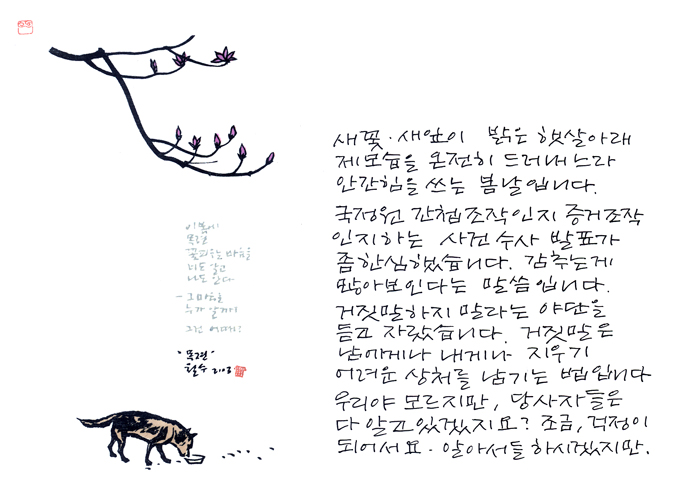 이 봄에
목련
꽃피우는 마음을
너도 알고
나도 안다
- 그 마음을
누가 알까?
그건 어때?
"목련"
철수 2003
새꽃·새잎이 밝은 햇살아래
제모습을 온전히 드러내느라
안간힘을 쓰는 봄날입니다.
국정원 간첩조작인지 증거조작
인지하는 사건 수사 발표가
좀한심했습니다. 감추는게
많아보인다는 말씀입니다.
거짓말하지 말라는 야단을
듣고 자랐습니다. 거짓말은
남에게나 내게나 지우기
어려운 상처를 남기는 법입니다
우리야 모르지만, 당사자들은
다 알고있겠지요? 조금, 걱정이
되어서요. 알아서들 하시겠지만.